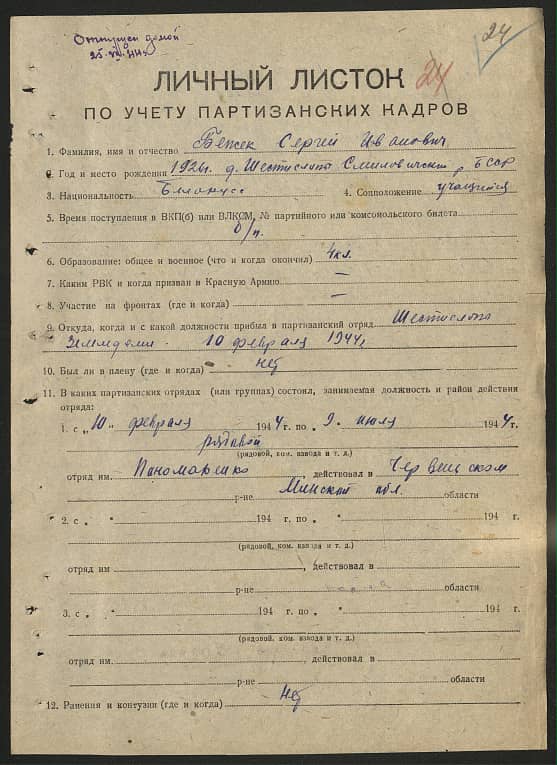 Отпущен домой
25.VII.44г.
24
ЛИЧНЫЙ ЛИСТОК 24
ПО УЧЕТУ ПАРТИЗАНСКИХ КАДРОВ
1. Фамилия, имя и отчество Бежек Сергей Иванович
2. Год и место рождения 1926г. д. Шестислопы Смиловичский р. БССР
3. Национальность Белорусс 4. Соцположение учащийся
5. Время поступления в ВКП(б) или ВЛКСМ, № партийного или комсомольского билета
б/п.
6. Образование: общее и военное (что и когда окончил) 4кл.
7. Каким РВК и когда призван в Красную Армию —
8. Участие на фронтах (где и когда) —
9. Откуда, когда и с какой должности прибыл в партизанский отряд Шестислопы
10 февраля 1944г
10. Был ли в плену (где и когда) нет
11. В каких партизанских отрядах (или группах) состоял, занимаемая должность и район действия
отряда:
1. с „10" февраля 1944 г. по „ 9. июля 1944 г.
рядовой
(рядовой, ком. взвода и т. д.)
отряд им. Пономаренко, действовал в Червенском
р-не Минской обл. области
2. с „ " 194 г. по „ " 194 г.
(рядовой, ком. взвода и т. д.)
отряд им , действовал в
р-не области
3. с „ " 194 г. по „ " 194 г.
(рядовой, ком. взвода и т. д.)
отряд им. действовал в
р-не области
12. Ранения и контузии (где и когда) Нет